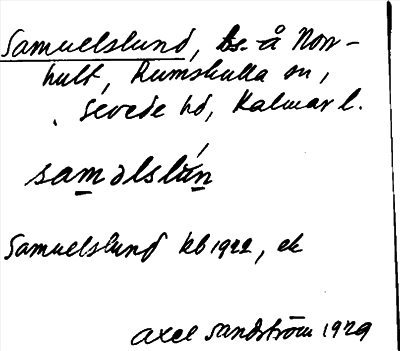 Samuelslund, ts. å Norr-
hult, Rumskulla sn,
Sevede hd, Kalmar l.
saməlslún
Samuelslund kb 1922, ek
Axel Sandström 1929